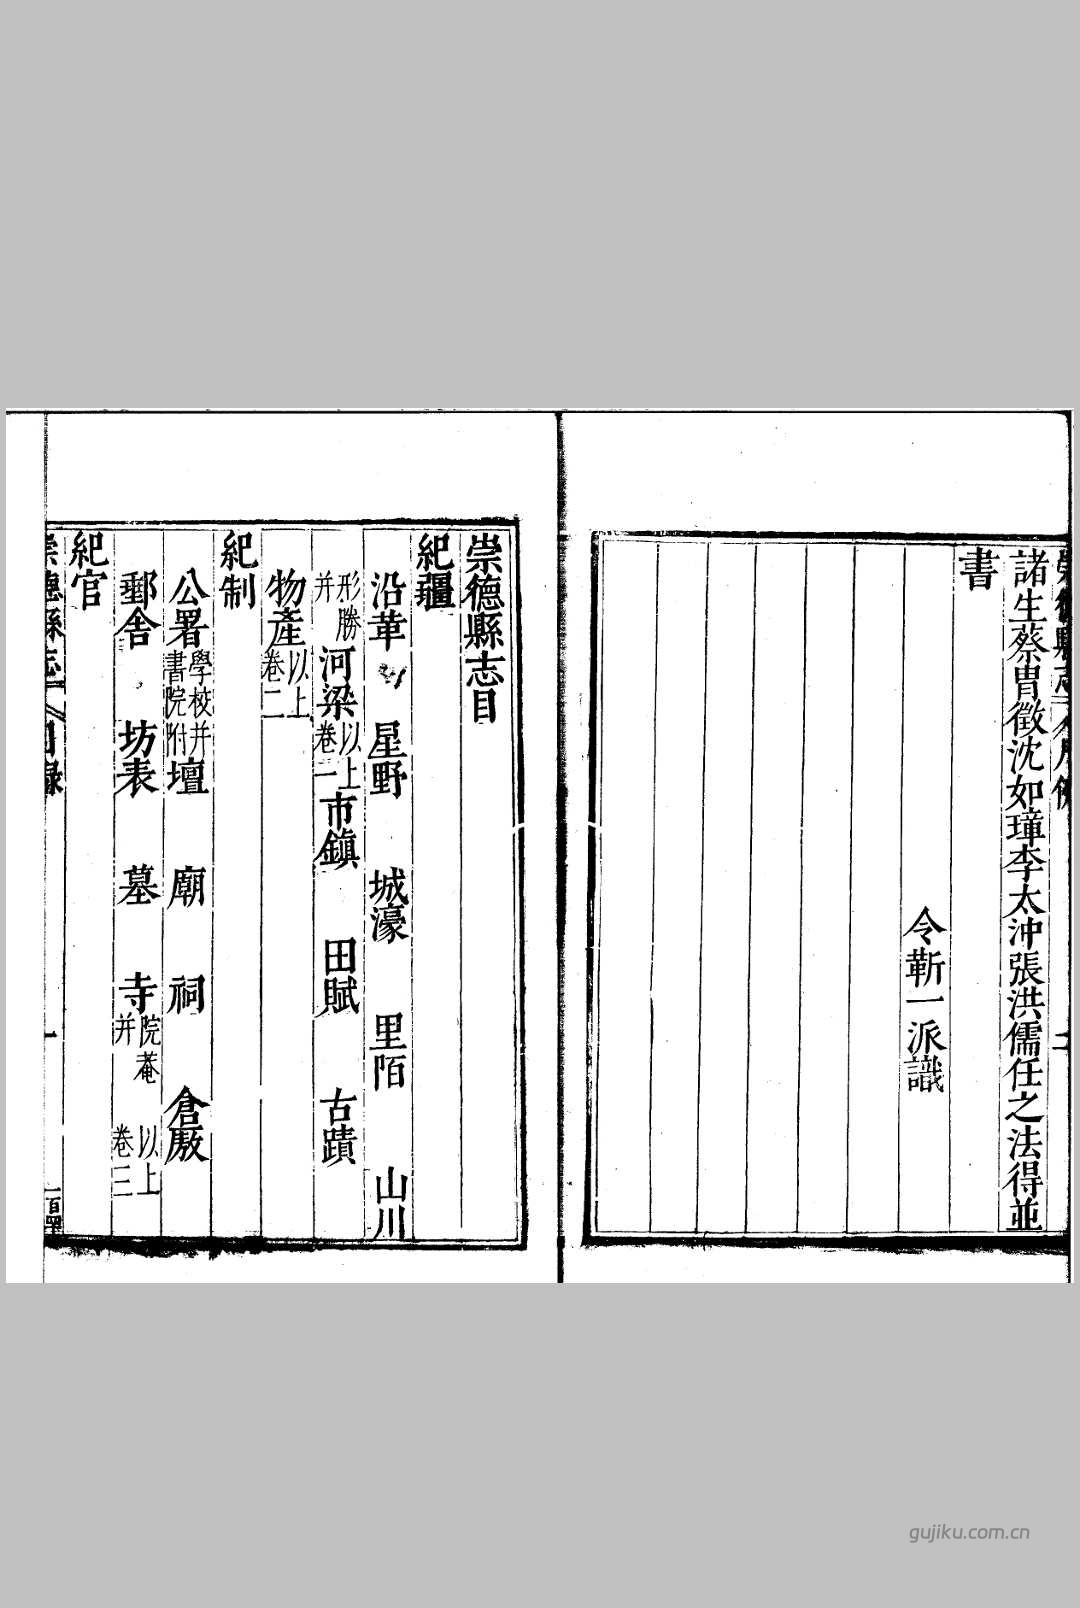 諸生蔡胄徵沈如璋李太沖張洪儒任之法得並
書
令靳一派識
崇德縣志目
紀疆
沿革 星野 城濠 里陌 山川
形勝并 河梁 以上卷一 市鎮 田賦 古蹟
物產 以上卷二
紀制
公署 學校并書院附 壇 廟 祠 倉廒
郵舍 坊表 墓 寺 院菴并 以上卷三
紀官
崇德縣志 目錄 一
gujiku.com.cn